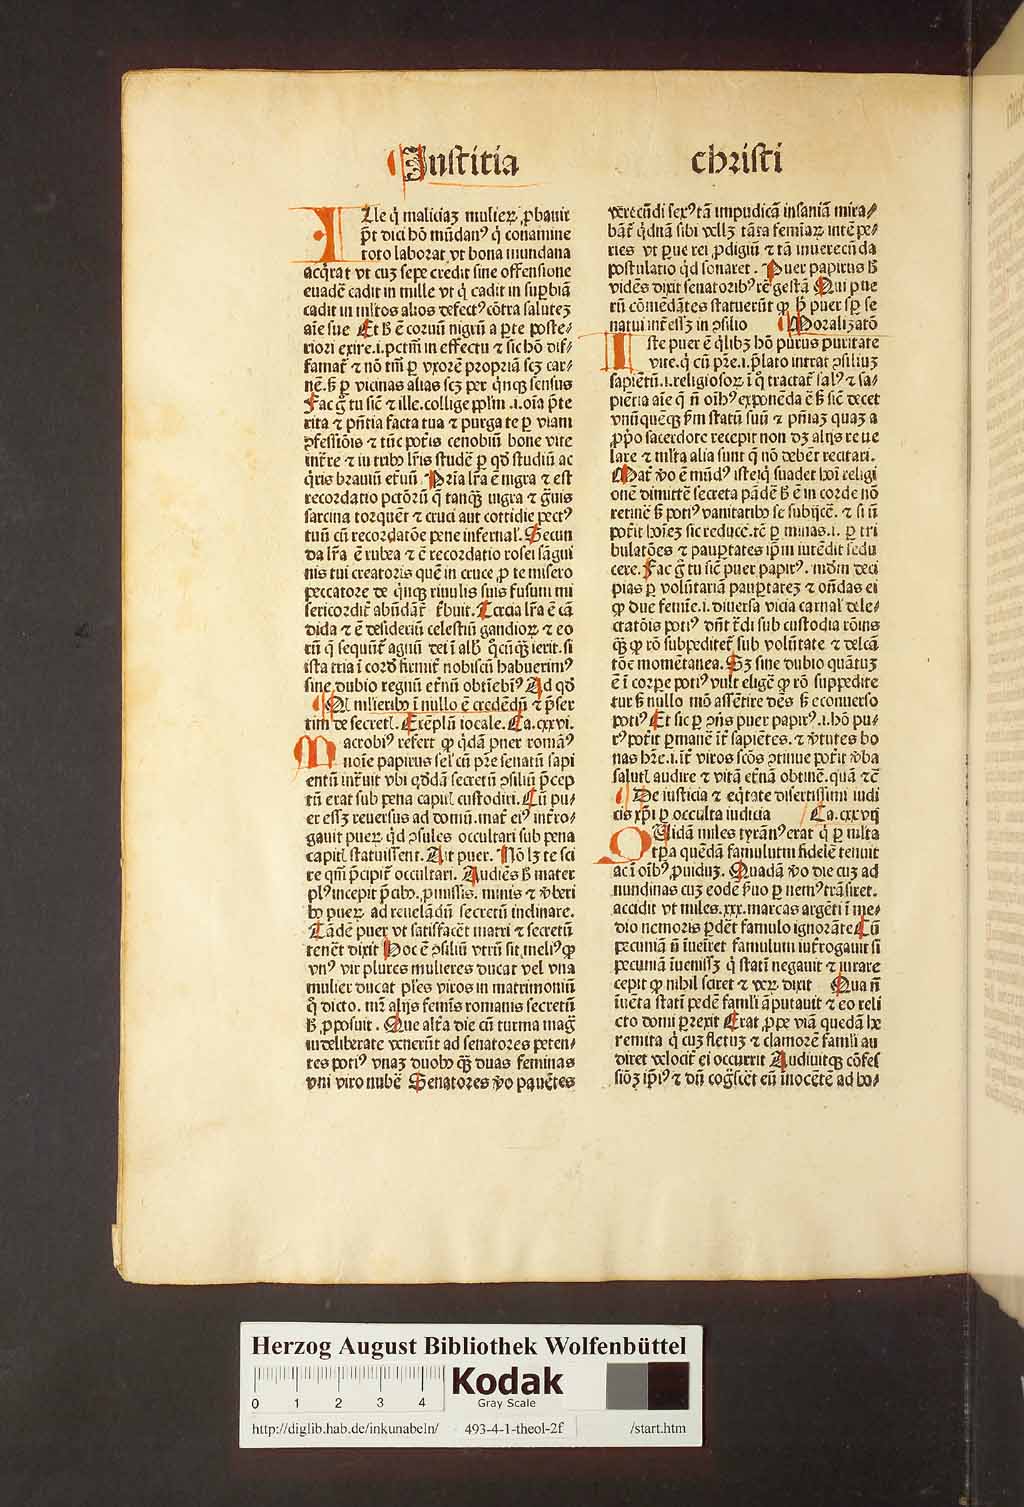 Justitia
christi
Lle q̄ maliciaȝ mulieꝝ ꝓbauit
p̄t dici hō mūdanꝰ q̄ conamine
toto laborat vt bona mundana
acq̄rat vt cuȝ sepe credit sine offensione
euadē cadit in mille vt q̄ cadit in suꝑbiā
cadit in mltos alios defectꝰ cōtra saluteȝ
aīe sue Et ß ē coruū nigrū a parte poste⸗
riori exire.i.pctm̄ in effectu ⁊ sic hō dif⸗
famat̄ ⁊ nō tm̄ ꝑ vxorē propriā scȝ car⸗
nē.ß ꝑ vicinas alias scȝ per q̄nqꝫ sensus
Fac g̊ tu sic̄ ⁊ ille.collige pplm̄ .i.oīa p̄te
rita ⁊ pn̄tia facta tua ⁊ purga te ꝑ viam
ↄfessiōis ⁊ tūc poṫis cenobiū bone vite
intrr̄e ⁊ in tribꝰ lr̄is studē ꝑ qđ studiū ac
q̄ris brauiū et̄nū Pria lr̄a ē nigra ⁊ est
recordatio pctōrū q̄ tanqꝫ nigra ⁊ g̊uis
sarcina torquēt ⁊ cruci aut cottidie pectꝰ
tuū cū recordatōe pene infernal. Secun
da lr̄a ē rubea ⁊ ē recordatio rosei sāgui
nis tui creatoris quē in cruce ꝓ te misero
peccatore de q̄nqꝫ riuulis suis fusum mi
sericordit̄ abūdāt̄ t̄buit. Tercia lr̄a ē cā
dida ⁊ ē desideriū celestiū gaudioꝝ ⁊ eo
rū q̄ sequūt̄ agnū dei ī alb̄ q̊cūqꝫ ierit.si
ista tria ī cordē firmit̄ nobiscū habuerimꝰ
sine dubio regnū et̄nū obtīebimꝰ Ad qđ
Ml̄ mlieribꝰ ī nullo ē credēdū ⁊ p̄ser
tim de secretꝭ. Exēplū iocale. Ca.cxxvi.
Macrobiꝰ refert ꝙ q̄dā puer romānꝰ
noīe papirus sel̄ cū pr̄e senatū sapi
entū int̄uit vbi qđdā secretū ↄsiliū p̄cep
tū erat sub pena capitꝭ custodiri. Cū pu⸗
er eēȝ reuersus ad domū.mat̄ eiꝰ int̄ro⸗
gauit pueꝝ qđ ↄsules occultari sub pena
capitꝭ statuissent. Ait puer. Nō lȝ te sci
re qm̄ p̄cipit̄ occultari. Audiēs ß mater
plꝰ incepit p̄cibꝰ. ꝓmissis. minis ⁊ v̄beri
bꝰ pueꝝ ad reuelādū secretū inclinare.
Tādē puer vt satisfacēt matri ⁊ secretū
tenēt dixit Hoc ē ↄsiliū vtrū sit meliꝰ ꝙ
vnꝰ vir plures mulieres ducat vel vna
mulier ducat pl̄es viros in matrimoniū
q̊ dicto. mr̄ alijs femīs romanis secretū
ß ꝓposuit . Que alt̄a die cū turma mag̊
indeliberate venerūt ad senatores peten⸗
tes potiꝰ vnaȝ duobꝰ qꝫ duas feminas
vni viro nubē Senatores v̄o pauētes
verecūdi sexꝰ tā impudicā insaniā mira⸗
bāt̄ q̄dnā sibi vellȝ tāta femīaꝝ intēpe⸗
ries vt pue rei ꝓdigiū ⁊ tā inuerecūda
postulatio qđ sonaret . Puer papirus ß
vidēs dixit senatoribꝰ rē gestā Qui pue
rū cōmēdātes statuerūt ꝙ h̄ puer sꝑ se
natui int̄eēȝ in ↄsilio Moralizatō
Iste puer ē q̄libȝ hō purus puritate
vite.q̄ cū pr̄e.i.p̄lato intrat ↄsiliuȝ
sapiētū.i.religiosoꝝ ī q̊ tractat̄ salꝰ ⁊ sa⸗
piētia aīe q̄ n̄ oībꝰ exponēda ē ß sic̄ decet
vnūquēqꝫ ßm statū suū ⁊ pn̄iaȝ quaȝ a
ꝓpo sacerdote recepit non dȝ alijs reue
lare ⁊ ml̄ta alia sunt q̄ nō debēt recitari.
Mat̄ v̄o ē mūdꝰ iste q̄ suadet hoī religi
onē dimittē secreta pādē ß ē in corde nō
retinē ß potiꝰ vanitatibꝰ se subijcē. ⁊ si n̄
poṫit hoīeȝ sic reducē.tē ꝑ minas.i. ꝑ tri
bulatōes ⁊ pauꝑtates ip̄m intēdit sedu
cere. Fac g̊ tu sic̄ puer papirꝰ. mōm deci
pias ꝑ volūtariā pauꝑtateȝ ⁊ on̄das ei
ꝙ due femīe.i. diuersa vicia carnal̄ dele⸗
ctatōis potiꝰ dn̄t t̄di sub custodia rōnis
qꝫ ꝙ rō subpeditet̄ sub volūtate ⁊ delcā
tōe momētanea. Sȝ sine dubio quātuȝ
ē ī corꝑe potiꝰ vult eligē ꝙ rō suppedite
tur ß nullo mō assētire dēs ß econuerso
potiꝰ Et sic ꝑ ↄn̄s puer papirꝰ.i.hō pu⸗
rꝰ poṫit ꝑmanē īt̄ sapiētes. ⁊ v̄tutes bo
nas hr̄e.i.īt̄ viros scōs ↄtinue poṫit v̄ba
salutꝭ audire ⁊ vitā et̄nā obtinē.quā ⁊c̄
De iusticia ⁊ eq̄tate disertissimi iudi
cis xp̄i ꝑ occulta iudicia Ca.cxxvij
Quidā miles tyrānꝰ erat q̄ ꝑ ml̄ta
tꝑa quēdā famulum fidelē tenuit
ac ī oībꝰ ꝓuiduȝ. Quadā v̄o die cuȝ ad
nundinas cuȝ eodē ßuo ꝑ nemꝰ trāsiret.
accidit vt miles.xxx.marcas argēti ī me⸗
dio nemoris ꝑdēt famulo ignorāte Cū
pecuniā n̄ īueīret famulum īnt̄rogauit si
pecuniā īueniȝ q̄ statī negauit ⁊ iurare
cepit ꝙ nihil sciret ⁊ veꝝ dixit Qua n̄
īuēta statī pedē famlī āputauit ⁊ eo reli
cto domi ꝑrexit Erat ꝓpe viā quedā he
remita q̄ cuȝ fletuȝ ⁊ clamorē famlī au
diret velocit̄ ei occurrit Audiuitqꝫ cōfes
siōȝ ip̄iꝰ ⁊ dū cog̊scēt eū īnocētē ad bo⸗
Herzog August Bibliothek Wolfenbüttel
0 1 2 3 4
Kodak
Gray Scale
http://diglib.hab.de/inkunabeln/ 493-4-1-theol-2f /start.htm